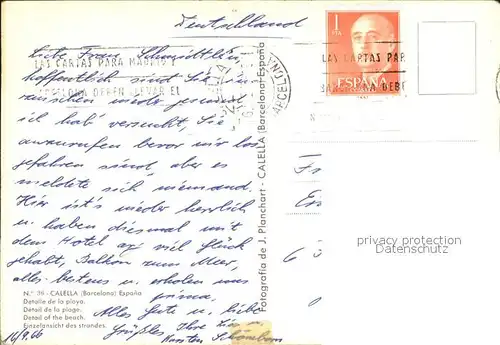 Deutschland
Liebe Frau Schmidtlein,
hoffentlich sind Sie in-
zwischen wieder gesund,
ich hab' versucht, Sie
anzurufen bevor wir los
gefahren sind, aber es
meldete sich niemand.
Hier ist's wieder herrlich
u. haben diesmal mit
dem Hotel viel Glück
gehabt, Balkon zum Meer,
alles bestens u. erholen uns
prima.
Alles Gute u. liebe
Grüße Ihre u.
Karsten
16/9.66
N.º 38 - CALELLA (Barcelona) España
Detalle de la playa.
Détail de la plage.
Detail of the beach.
Einzelansicht des strandes.
Fotografía de J. Planchart - CALELLA (Barcelona) España
LAS CARTAS PARA MADRID Y
BARCELONA DEBEN LLEVAR EL
LAS CARTAS PAR
BARCELONA DEBE
BARCELONA
1
PTA
ESPAÑA
privacy protection
AnsichtskartenLexikon.de